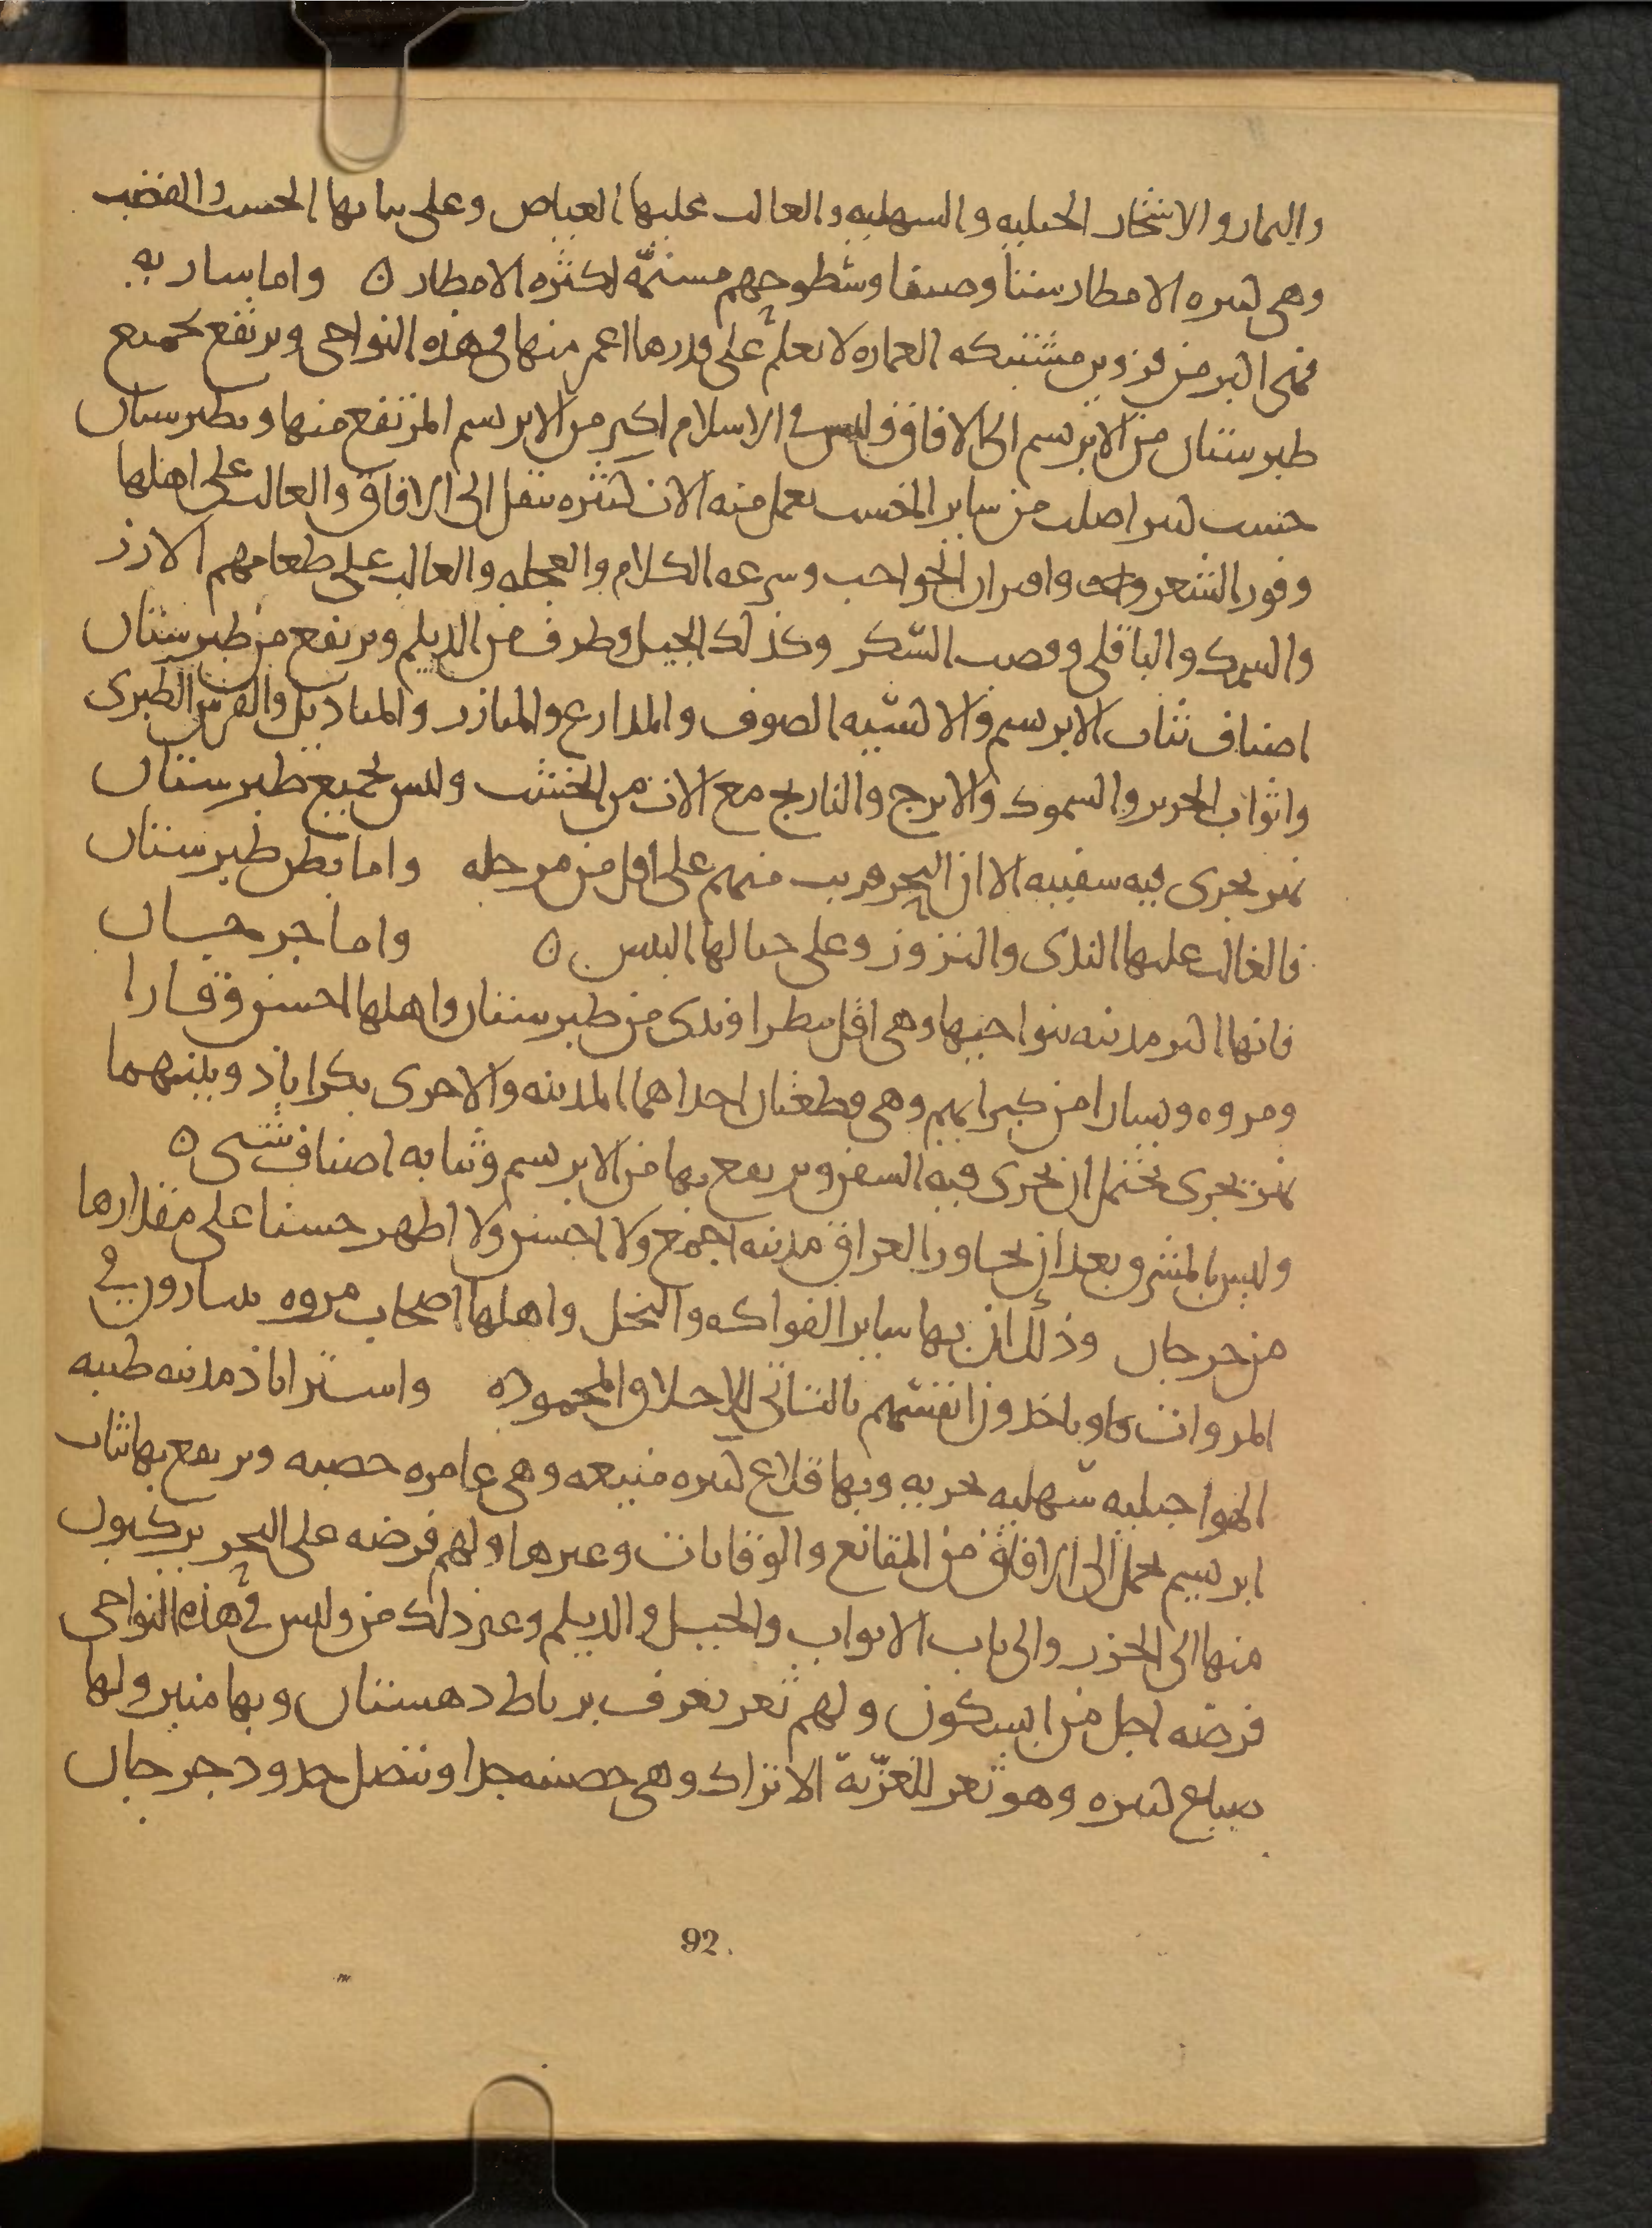 والثمار والاشجار الجبليه والسهليه والغالب عليها الغياض وعلى بنائها الخشب والقصب
وهى كثيره الامطار شتا وصيفا وسطوحهم مسنمّه لكثره الامطار ه واما ساريه
فهى اكبر من قزوين مشتبكه العماره لا نعلم على قدرها اعمر منها فى هذه النواحى ويرتفع بجميع
طبرستان من الابريسم الى الافاق وليس فى الاسلام اكبر من الابريسم المرتفع منها وبطبرستان
خشب كثير اصلب من ساير الخشب يعمل منه الات كثيره تنقل الى الافاق والغالب على اهلها
وفور الشعر واقتران الحواجب وسرعه الكلام والعجله والغالب على طعامهم الارز
والسمك والباقلى وقصب السكر وكذلك الجيل وطرف من الديلم ويرتفع من طبرستان
اصناف ثياب الابريسم والاكسيه الصوف والمدارع والميازر والمناديل والفرش الطبرى
واثواب الحرير والسموك والاترج والنارنج مع الات من الخشب وليس بجميع طبرستان
نهر يجرى فيه سفينه الا ان البحر قريب منهم على اقل من مرحله واما بطن طبرستان
فالغالب عليها الندى والنزوز وعلى جبالها اليبس ه واما جرجان
فانها اكبر مدينه بنواحيها وهى اقل مطرا وندى من طبرستان واهلها احسن وقارا
ومروه ويسارا من كبرايهم وهى قطعتان احداهما المدينه والاخرى بكراباذ وبينهما
نهر يجرى يحتمل ان يجرى فيه السفن ويرتفع بها من الابريسم وثيابه اصناف شتى ه
وليس بالمشرق بعد ان تجاوز العراق مدينه اجمع ولا احسن ولا اظهر حسنا على مقدارها
من جرجان وذلك ان بها ساير الفواكه والنخل واهلها اصحاب مروه يسارون فى
المروات وياخذون انفسهم بالتانى للاخلاق المحموده واستراباذ مدينه طيبه
الهوا جبليه سهليه بحريه وبها قلاع كثيره منيعه وهى عامره خصبه ويرتفع بها ثياب
ابريسم تحمل الى الافاق من المقانع والوقايات وغيرها ولهم فرضه على البحر يركبون
منها الى الخزر والى باب الابواب والجيل والديلم وغير ذلك من وليس فى هذه النواحى
فرضه اجل من ابسكون ولهم ثغر يعرف برباط دهستان وبها منبر ولها
ضياع كثيره وهو ثغر للغزّية الاتراك وهى حصينه جدا وتتصل حدود جرجان
92.